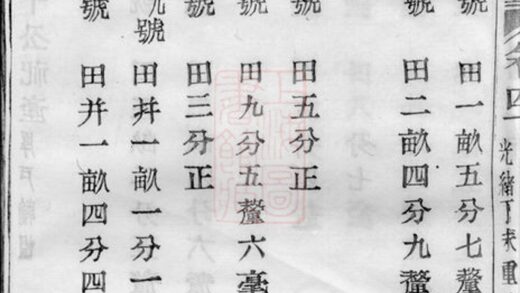 卷四 光緒丁未重
號 田一畝五分七釐
號 田二畝四分九釐
田五分正
號 田九分五釐六毫
田三分正
九號 田并一畝一分一
號 田并一畝四分四